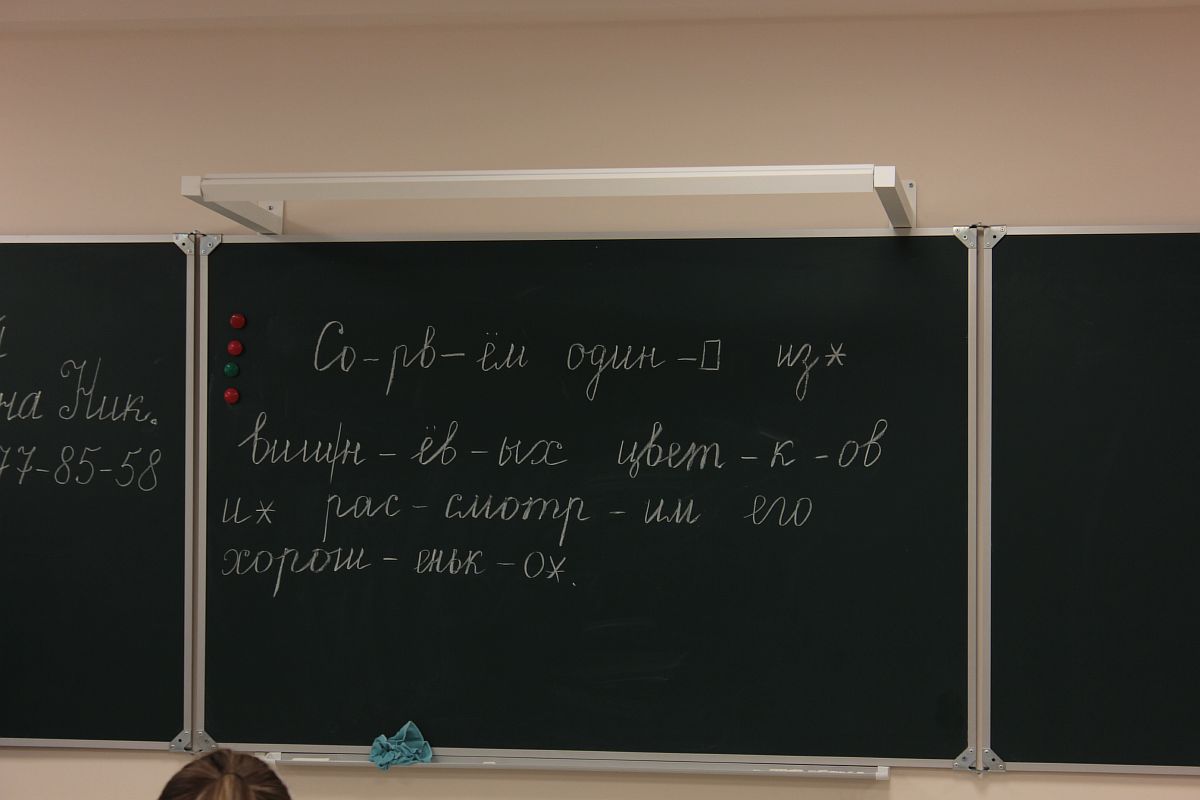 на Ник.
77-85-58
Со-рв-ём один-▯ из*
вишн-ёв-ых цвет-к-ов
и* рас-смотр-им его
хорош-еньк-о*.